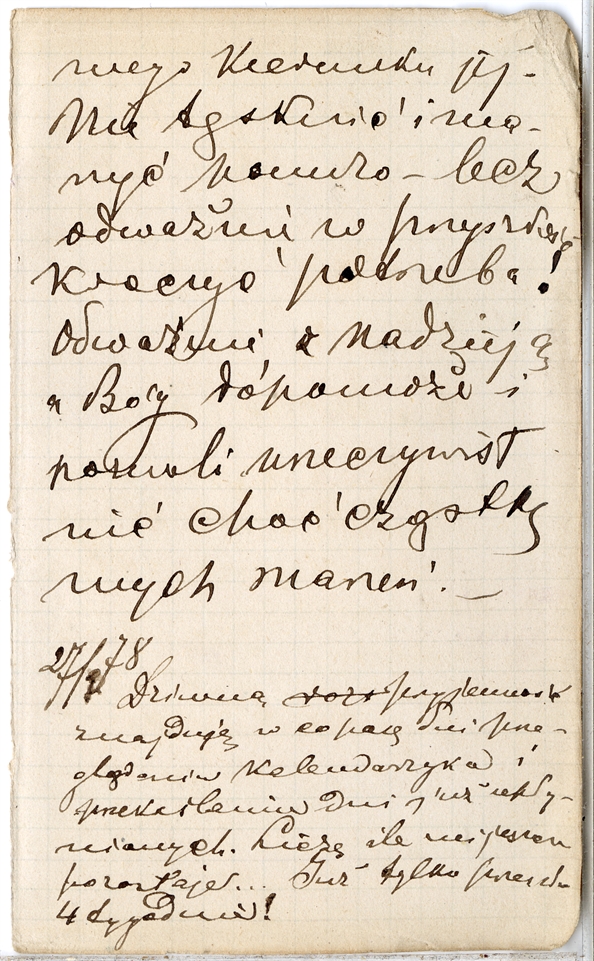 mego kierunku jej.
Nie tęsknić i ma-
rzyć ponuro – lecz
odważnie w przyszłość
kroczyć potrzeba!
Odważnie z nadzieją
a Bóg dopomoże i
pozwoli urzeczywist
nić choć cząstkę
mych marzeń. –
27/ 78
Dziwną przyjemność
znajduję w co parę dni prze-
glądaniu kalendarzyka i
przekreślaniu dni już
nionych. Liczę ile mi jeszcze
pozostaje... Już tylko
4 tygodnie!